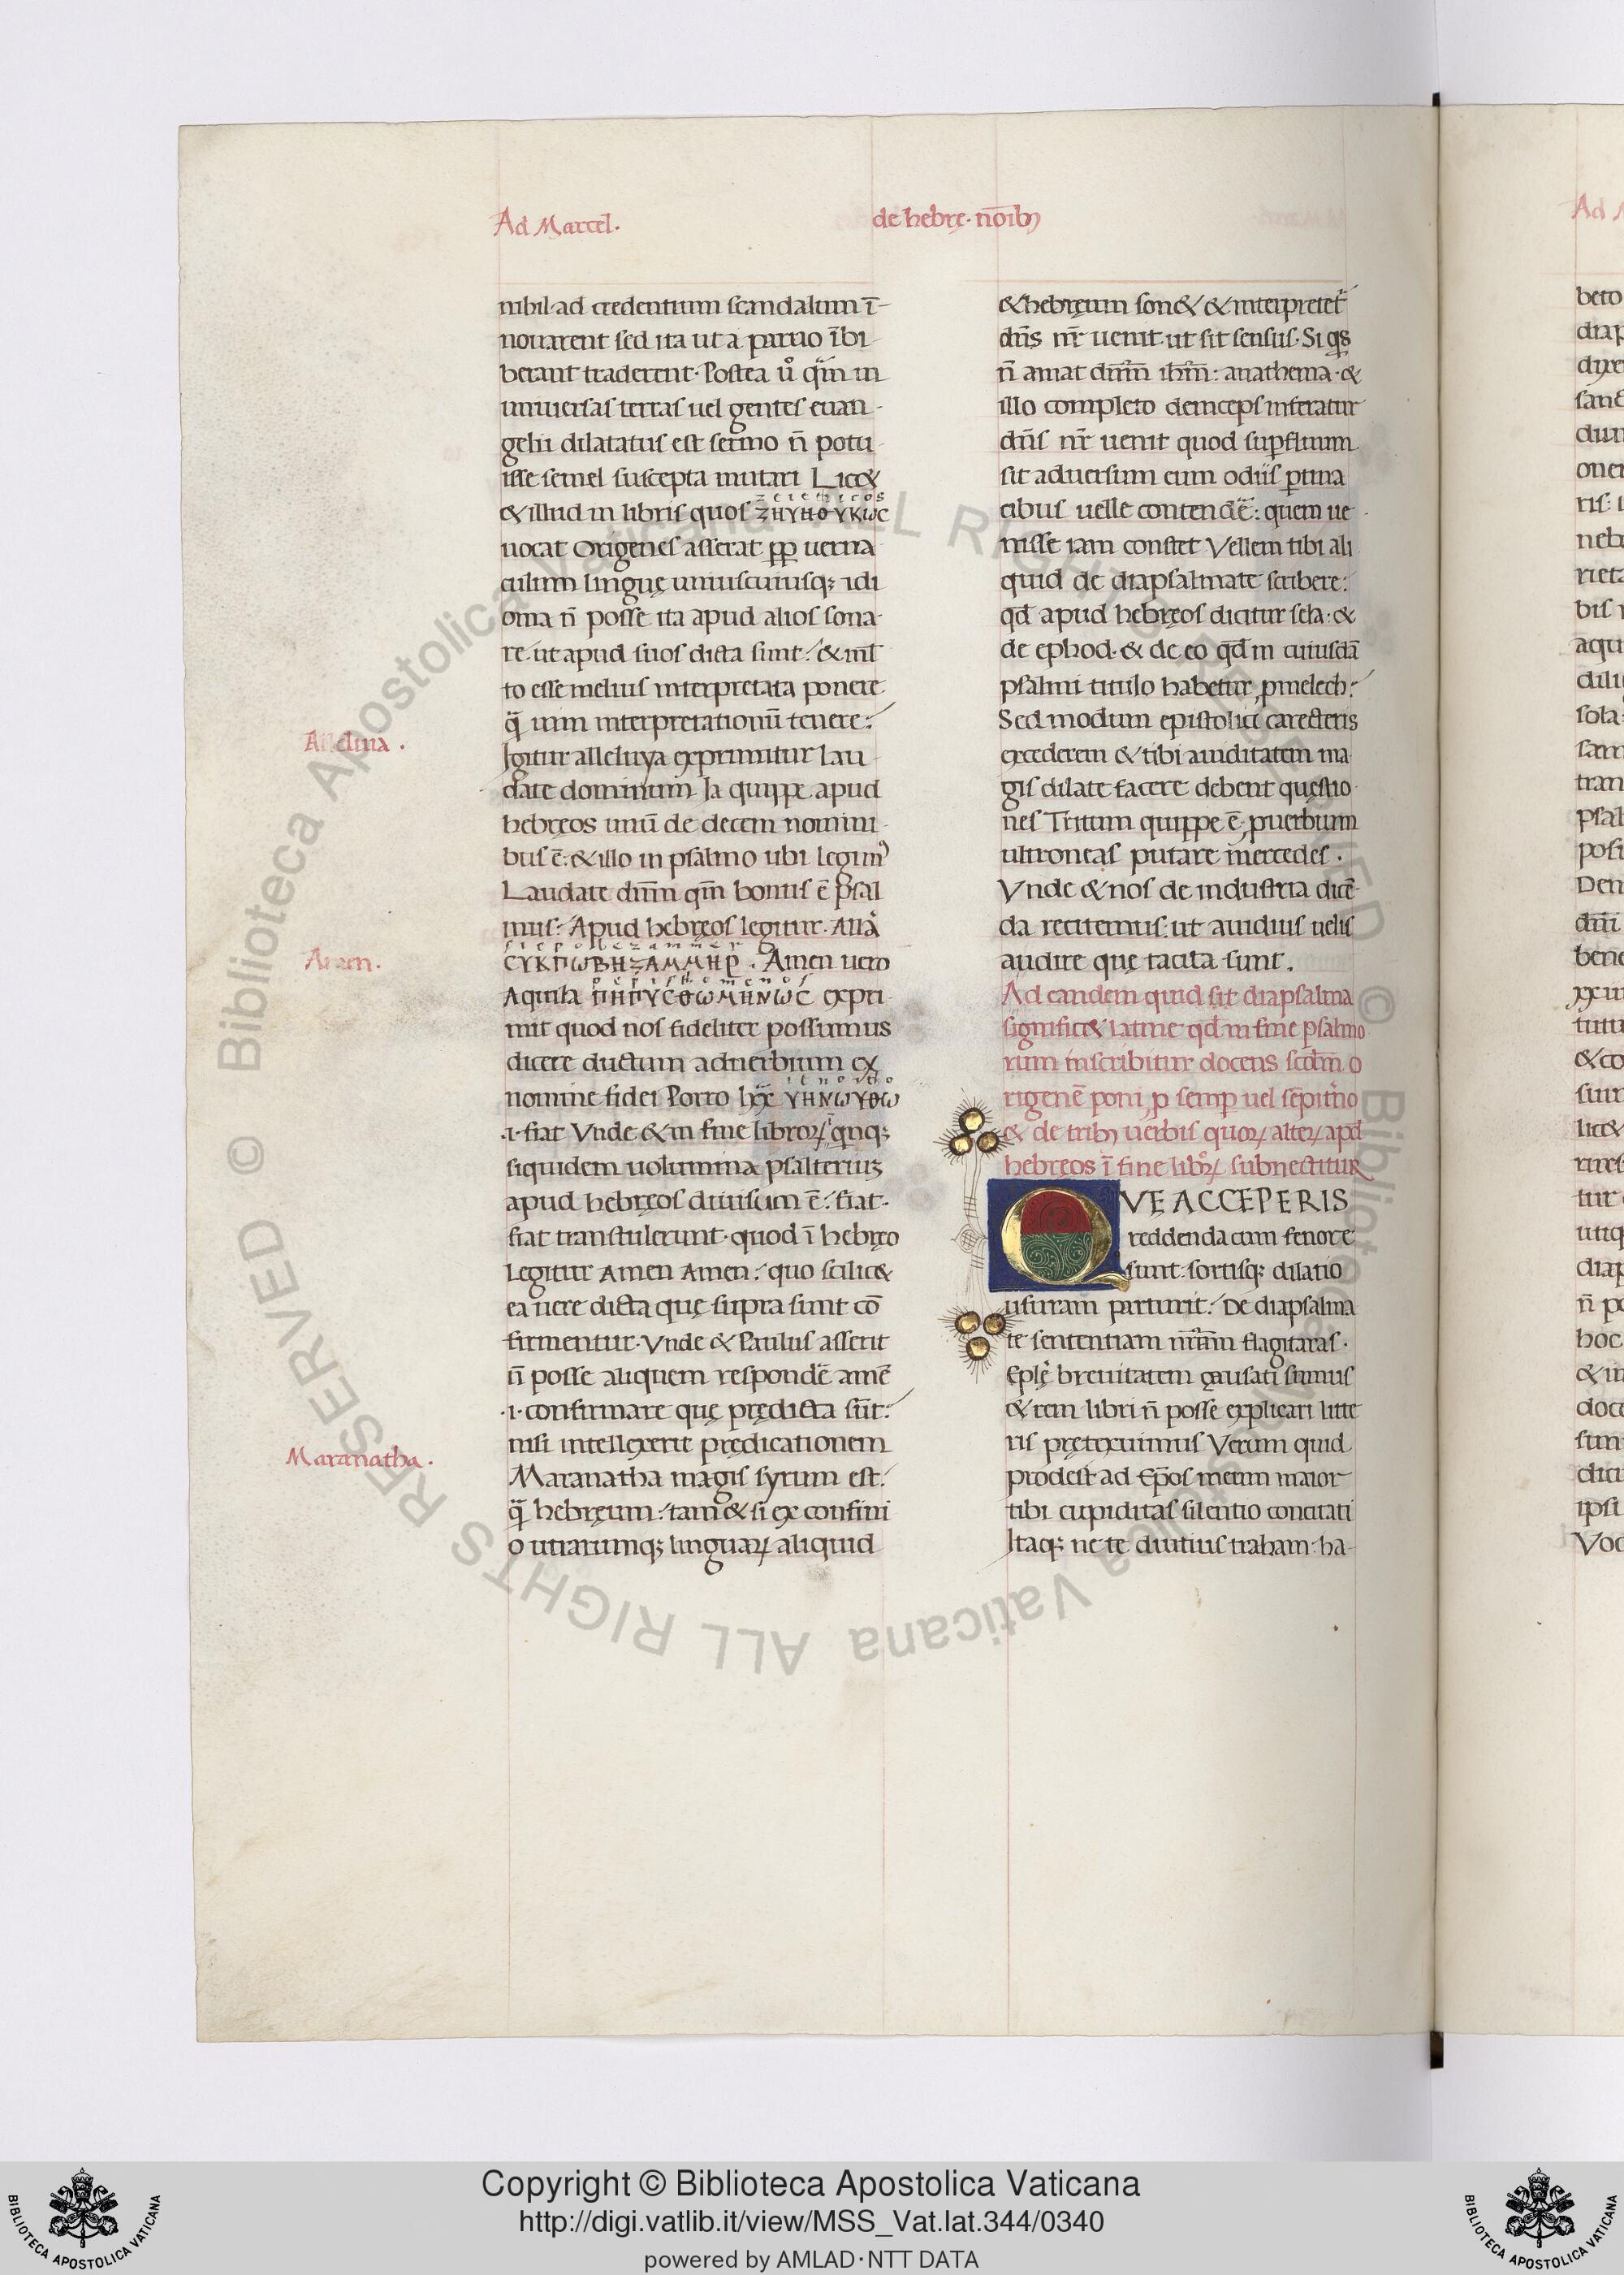 Ad Marcel.
de hebrę. nōībꝫ
nihil ad credentium scandalum ī-
novarent sed ita ut a paruo ībi-
berant traderent. Postea ů qm̄ in
universas terras uel gentes euan-
gelii dilatatus est sermo n̄ potu-
isse semel suscepta mutari Lic&
& illud in libris quos ΞΗΥΗΘΥΚωC
uocat Origenes asserat ꝓp uerna-
culum linguę uniuscuiusqꝫ idi
oma n̄ posse ita apud alios sona-
re. ut apud suos dicta sunt: & ml̄-
to esse melius interpretata ponere
q̄ uim interpretationū tenere:
Igitur alleluya exprimitur Lau-
date dominum. Ia quippe apud
hebręos unū de decem nomini-
bus ē: & illo in psalmo ubi legim᾿
Laudate dn̄m qm̄ bonus ē psal
mus: Apud hebręos legitur. Alla
CΥΚΠωΒΗΖΑΜΜΗΡ. Amen uero
Aquila ΠΗΠΥCΘωΜΗΝωC expri-
mit quod nos fideliter possumus
dicere ductum aduerbium ex
nomine fidei Porro lxx ΥΗΝωΥΘω
.i. fiat Vnde & in fine libroꝝ qnqꝫ
siquidem uolumina psalteriuꝫ
apud hebręos diuisum ē: fiat.
fiat transtulerunt. quod ī hebręo
Legitur Amen Amen: quo scilic&
ea uere dicta quę supra sunt cō
firmentur. Vnde & Paulus asserit
n̄ posse aliquem respondē amē
.i. confirmare quę prędicta sūt:
nisi intellexerit prędicationem
Maranatha magis syrum est:
q̄ hebręum: tam & si ex confini
o utrarumqꝫ linguaꝝ aliquid
Alleluia.
Amen.
Maranatha.
& hebręum son& & interpretet᾿
dn̄s nr̄ uenit. ut sit sensus. Si qs
n̄ amat dn̄m ih̄m: anathema. &
illo completo deinceps inferatur
dn̄s nr̄ uenit quod suꝑfluum
sit aduersum eum odiis ꝑtina
cibus uelle contendē: quem ue-
nisse iam constet Vellem tibi ali
quid de diapsalmate scribere:
qd̄ apud hebręos dicitur sela: &
de ephod. & de eo qd̄ in cuiusdā
psalmi titulo habetur ꝓmelech:
Sed modum epistolici caracteris
excederem & tibi auiditatem ma-
gis dilate facere debent questio-
nes Tritum quippe ē ꝓuerbium
ultroneas putare mercedes.
Vnde & nos de industria dicē-
da recitemus: ut auidius uelis
audire quę tacita sunt.
Ad eandem quid sit diapsalma
signific& latine qd̄ in fine psalmo
rum inscribitur docens scdm̄ o
rigenē poni ꝓ semꝑ uel sēpitno
& de tribꝫ uerbis quoꝝ alteꝝ apd
hebręos ī fine liboꝝ subnectitur
QVĘ ACCEPERIS
reddenda cum fenore
sunt. sortisqꝫ dilatio
usuram parturit: De diapsalma
te sententiam nr̄am flagitaras.
Eplę breuitatem causati sumus
& rem libri n̄ posse explicari litte
ris prętexuimus Verum quid
prodest ad Ep̄os meum maior
tibi cupiditas silentio concitati
Itaqꝫ ne te diutius traham: ha-
Copyright © Biblioteca Apostolica Vaticana
http://digi.vatlib.it/view/MSS_Vat.lat.344/0340
powered by AMLAD·NTT DATA
BIBLIOTECA APOSTOLICA VATICANA
BIBLIOTECA APOSTOLICA VATICANA
© Biblioteca Apostolica Vaticana ALL RIGHTS RESERVED © Biblioteca Apostolica Vaticana ALL RIGHTS RESERVED